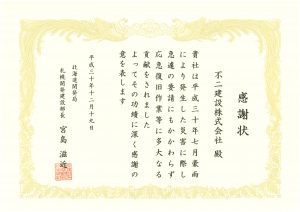 感謝状
不二建設株式会社 殿
貴社は平成三十年七月豪雨
により発生した災害に際し
急遽の要請にもかかわらず
応急復旧作業等に多大なる
貢献をされました
よってその功績に深く感謝の
意を表します
平成三十年十二月十九日
北海道開発局
札幌開発建設部長 宮島 滋近